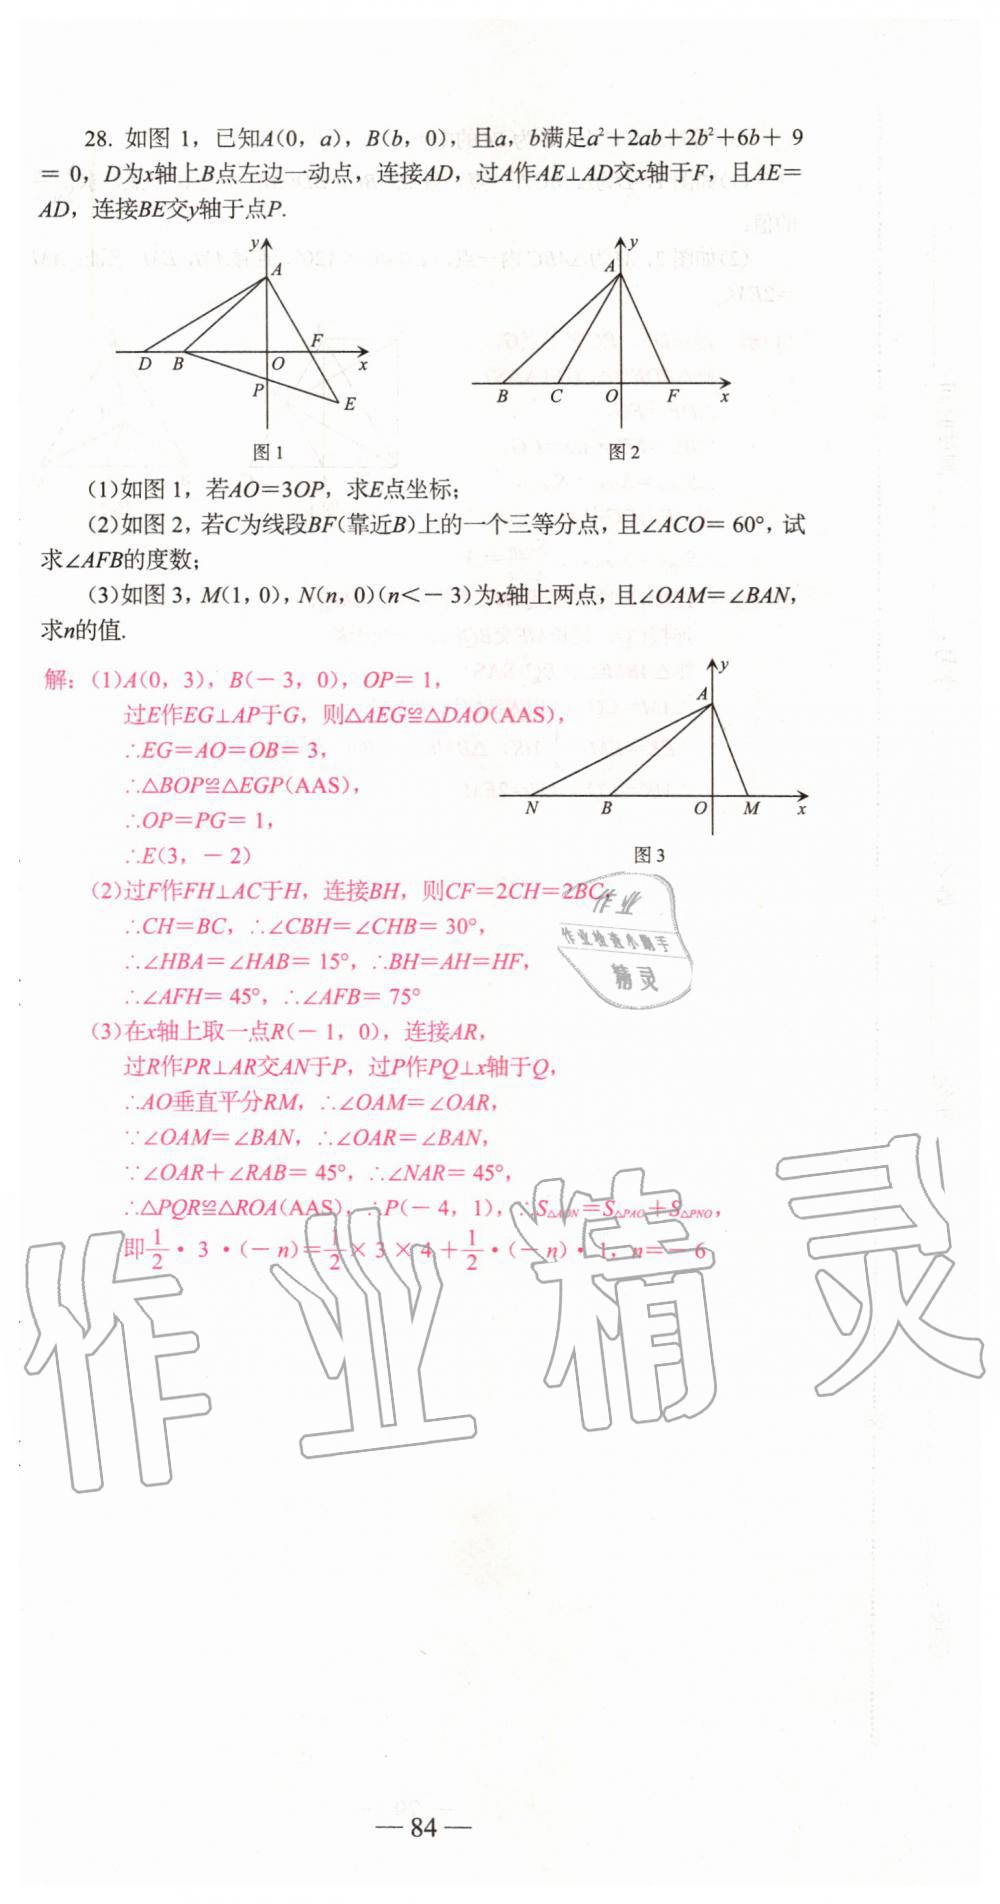 28. 如图 1，已知A(0，a)，B(b，0)，且a，b满足a²＋2ab＋2b²＋6b＋9
＝0，D为x轴上B点左边一动点，连接AD，过A作AE⊥AD交x轴于F，且AE＝
AD，连接BE交y轴于点P.
y
A
D B O F x
P
E
图 1
y
A
B C O F x
图 2
(1)如图 1，若AO＝3OP，求E点坐标；
(2)如图 2，若C为线段BF(靠近B)上的一个三等分点，且∠ACO＝60°，试
求∠AFB的度数；
(3)如图 3，M(1，0)，N(n，0)(n＜－3)为x轴上两点，且∠OAM＝∠BAN，
求n的值.
解：(1)A(0，3)，B(－3，0)，OP＝1，
过E作EG⊥AP于G，则△AEG≌△DAO(AAS)，
∴EG＝AO＝OB＝3，
∴△BOP≌△EGP(AAS)，
∴OP＝PG＝1，
∴E(3，－2)
y
A
N B O M x
图 3
(2)过F作FH⊥AC于H，连接BH，则CF＝2CH＝2BC，
∴CH＝BC，∴∠CBH＝∠CHB＝30°，
∴∠HBA＝∠HAB＝15°，∴BH＝AH＝HF，
∴∠AFH＝45°，∴∠AFB＝75°
(3)在x轴上取一点R(－1，0)，连接AR，
过R作PR⊥AR交AN于P，过P作PQ⊥x轴于Q，
∴AO垂直平分RM，∴∠OAM＝∠OAR，
∵∠OAM＝∠BAN，∴∠OAR＝∠BAN，
∵∠OAR＋∠RAB＝45°，∴∠NAR＝45°，
∴△PQR≌△ROA(AAS)，∴P(－4，1)，∴S△AON＝S△PAO＋S△PNO，
即1/2·3·(－n)＝1/2×3×4＋1/2·(－n)·1，n＝－6
作业
作业检查小助手
精灵
作业精灵
— 84 —